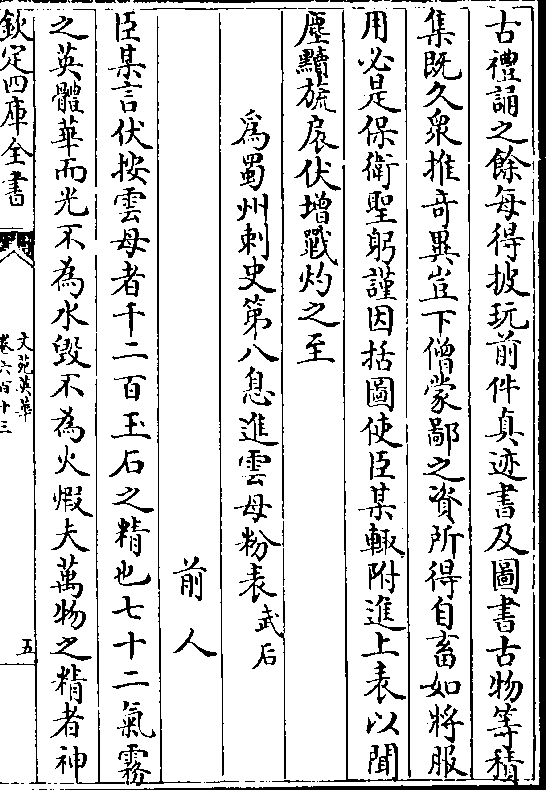 古禮誦之餘每得披玩前件真迹書及圖書古物等積
集既久衆推奇異豈下僧蒙鄙之資所得自畜如將服
用必是保衛聖躬謹因括圖使臣某輙附進上表以聞
塵黷旒扆伏增戰灼之至
爲蜀州刺史第八息進雲母粉表武后
前人
臣某言伏按雲母者千二百玉石之精也七十二氣霧
之英體華而光不為水毀不為火煆夫萬物之精者神
欽定四庫全書
文苑英華
卷六百十三
五